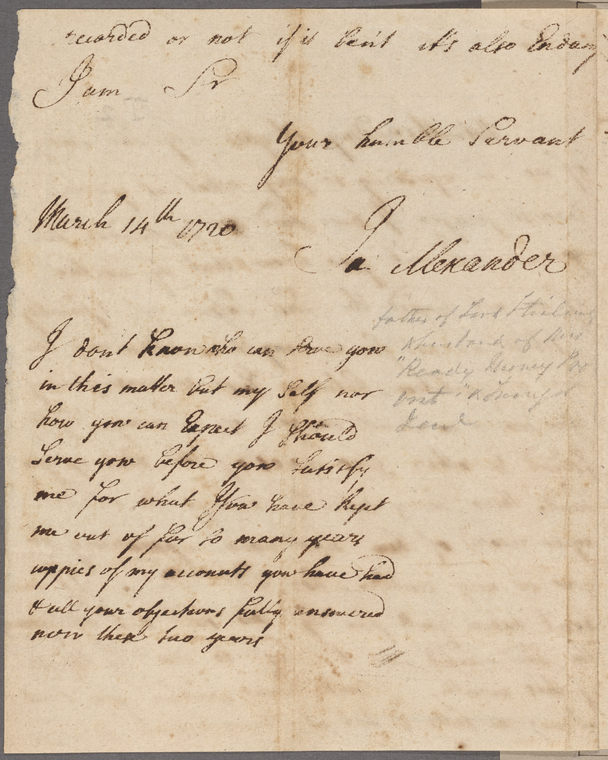 recorded or not if it ben't it's also
I am Sr
Your humble Servant
March 14th 1720
Ja Alexander
father of Lord Stirling
I dont know who can serve you
in this matter but my Self nor
how you can Expect I Should
Serve you before you Satisfy
me for what You have kept
me out of for so many years
coppies of my accounts you have had
& all your objections fully answered
now these two years